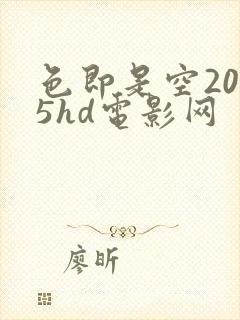 色即是空20
5hd电影网
廖昕